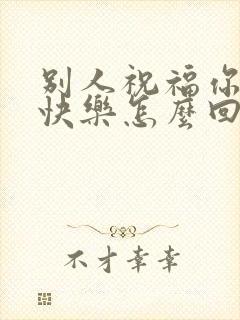 别人祝福你
快樂怎麼回
不才幸幸